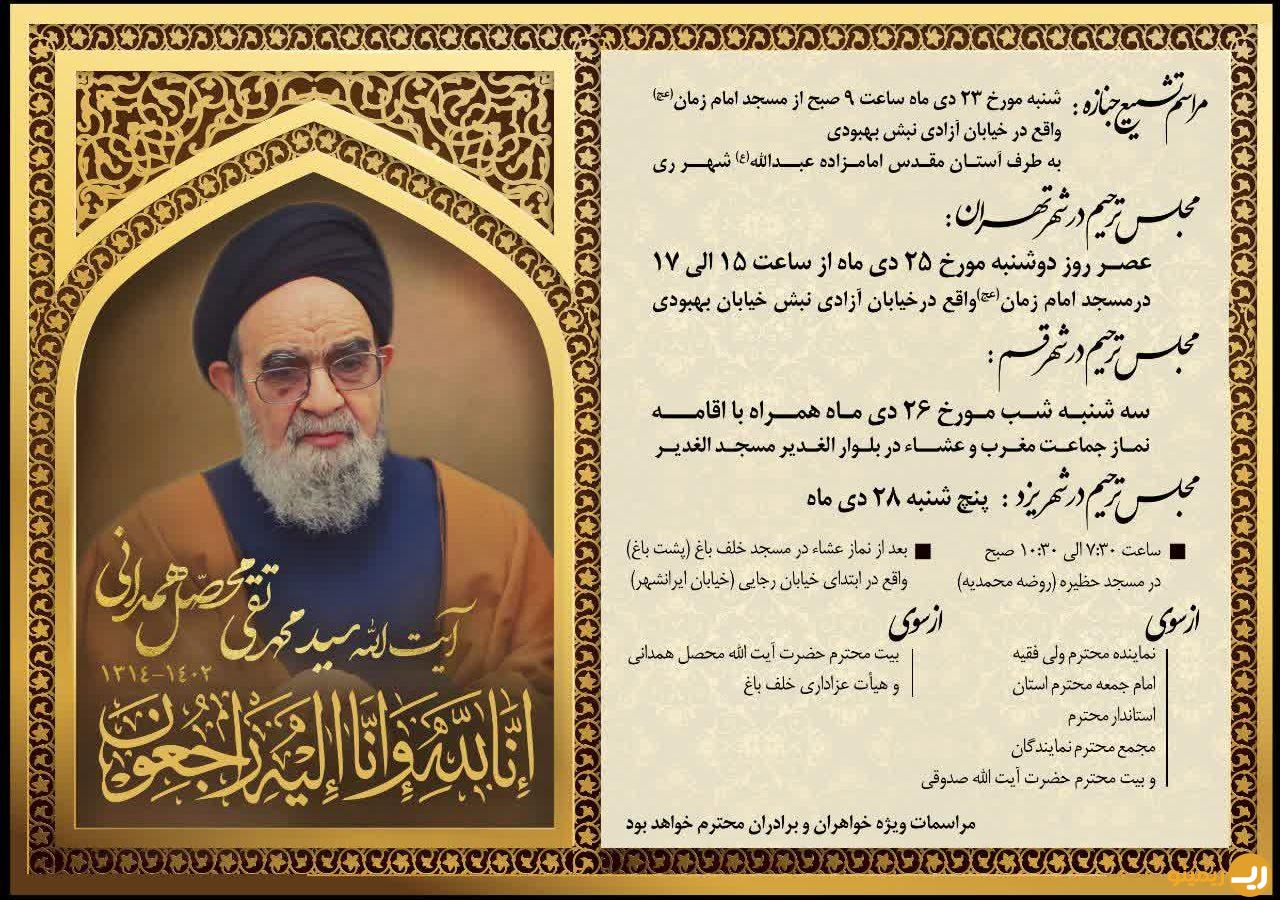 مراسم تشییع جنازه :
شنبه مورخ ۲۳ دی ماه ساعت ۹ صبح از مسجد امام زمان(عج)
واقع در خیابان آزادی نبش بهبودی
به طرف آستان مقدس امامزاده عبدالله(ع) شهر ری
مجلس ترحیم در شهر تهران :
عصر روز دوشنبه مورخ ۲۵ دی ماه از ساعت ۱۵ الی ۱۷
درمسجد امام زمان(عج)واقع درخیابان آزادی نبش خیابان بهبودی
مجلس ترحیم در شهر قم :
سه شنبه شب مورخ ۲۶ دی ماه همراه با اقامه
نماز جماعت مغرب و عشاء در بلوار الغدیر مسجد الغدیر
مجلس ترحیم در شهر یزد : پنچ شنبه ۲۸ دی ماه
■ ساعت ۷:۳۰ الی ۱۰:۳۰ صبح
در مسجد حظیره (روضه محمدیه)
■ بعد از نماز عشاء در مسجد خلف باغ (پشت باغ)
واقع در ابتدای خیابان رجایی (خیابان ایرانشهر)
از سوی
نماینده محترم ولی فقیه
امام جمعه محترم استان
استاندار محترم
مجمع محترم نمایندگان
و بیت محترم حضرت آیت الله صدوقی
از سوی
بیت محترم حضرت آیت الله محصل همدانی
و هیأت عزاداری خلف باغ
مراسمات ویژه خواهران و برادران محترم خواهد بود
آیت الله سید محمد تقی محصل همدانی
۱۳۱۴-۱۴۰۲
إنا لله وإنا إليه راجعون
ریمینو